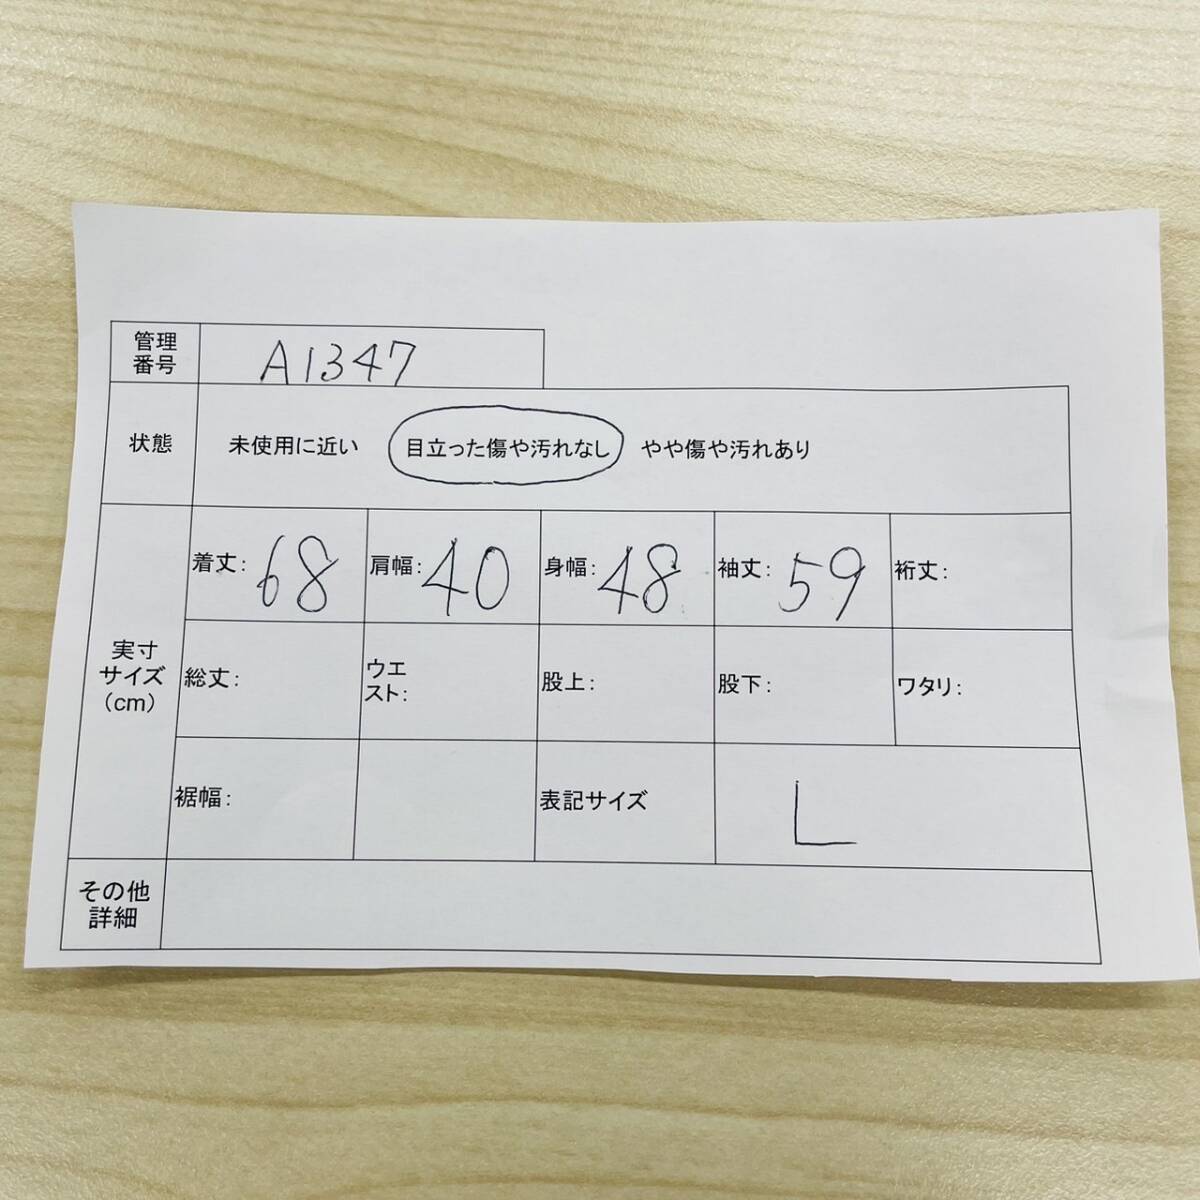 管理
番号
A1347
状態
未使用に近い 目立った傷や汚れなし やや傷や汚れあり
実寸
サイズ
（cm）
着丈：68 肩幅：40 身幅：48 袖丈：59 裄丈：
総丈：
ウエ
スト：
股上：
股下：
ワタリ：
裾幅：
表記サイズ
L
その他
詳細